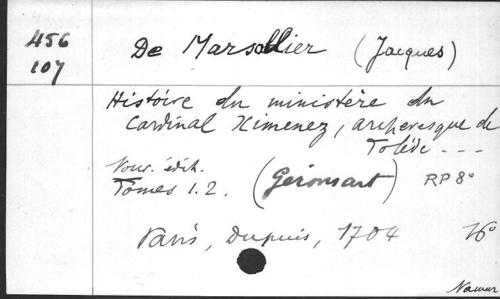 456
107
De Marsollier (Jacques)
Histoire du ministère du
Cardinal Ximenez, archevesque de
Tolède ---
Nouv. édit.
Tomes 1.2. (Geronsart) RP 8°
Paris, Dupuis, 1704
Namur